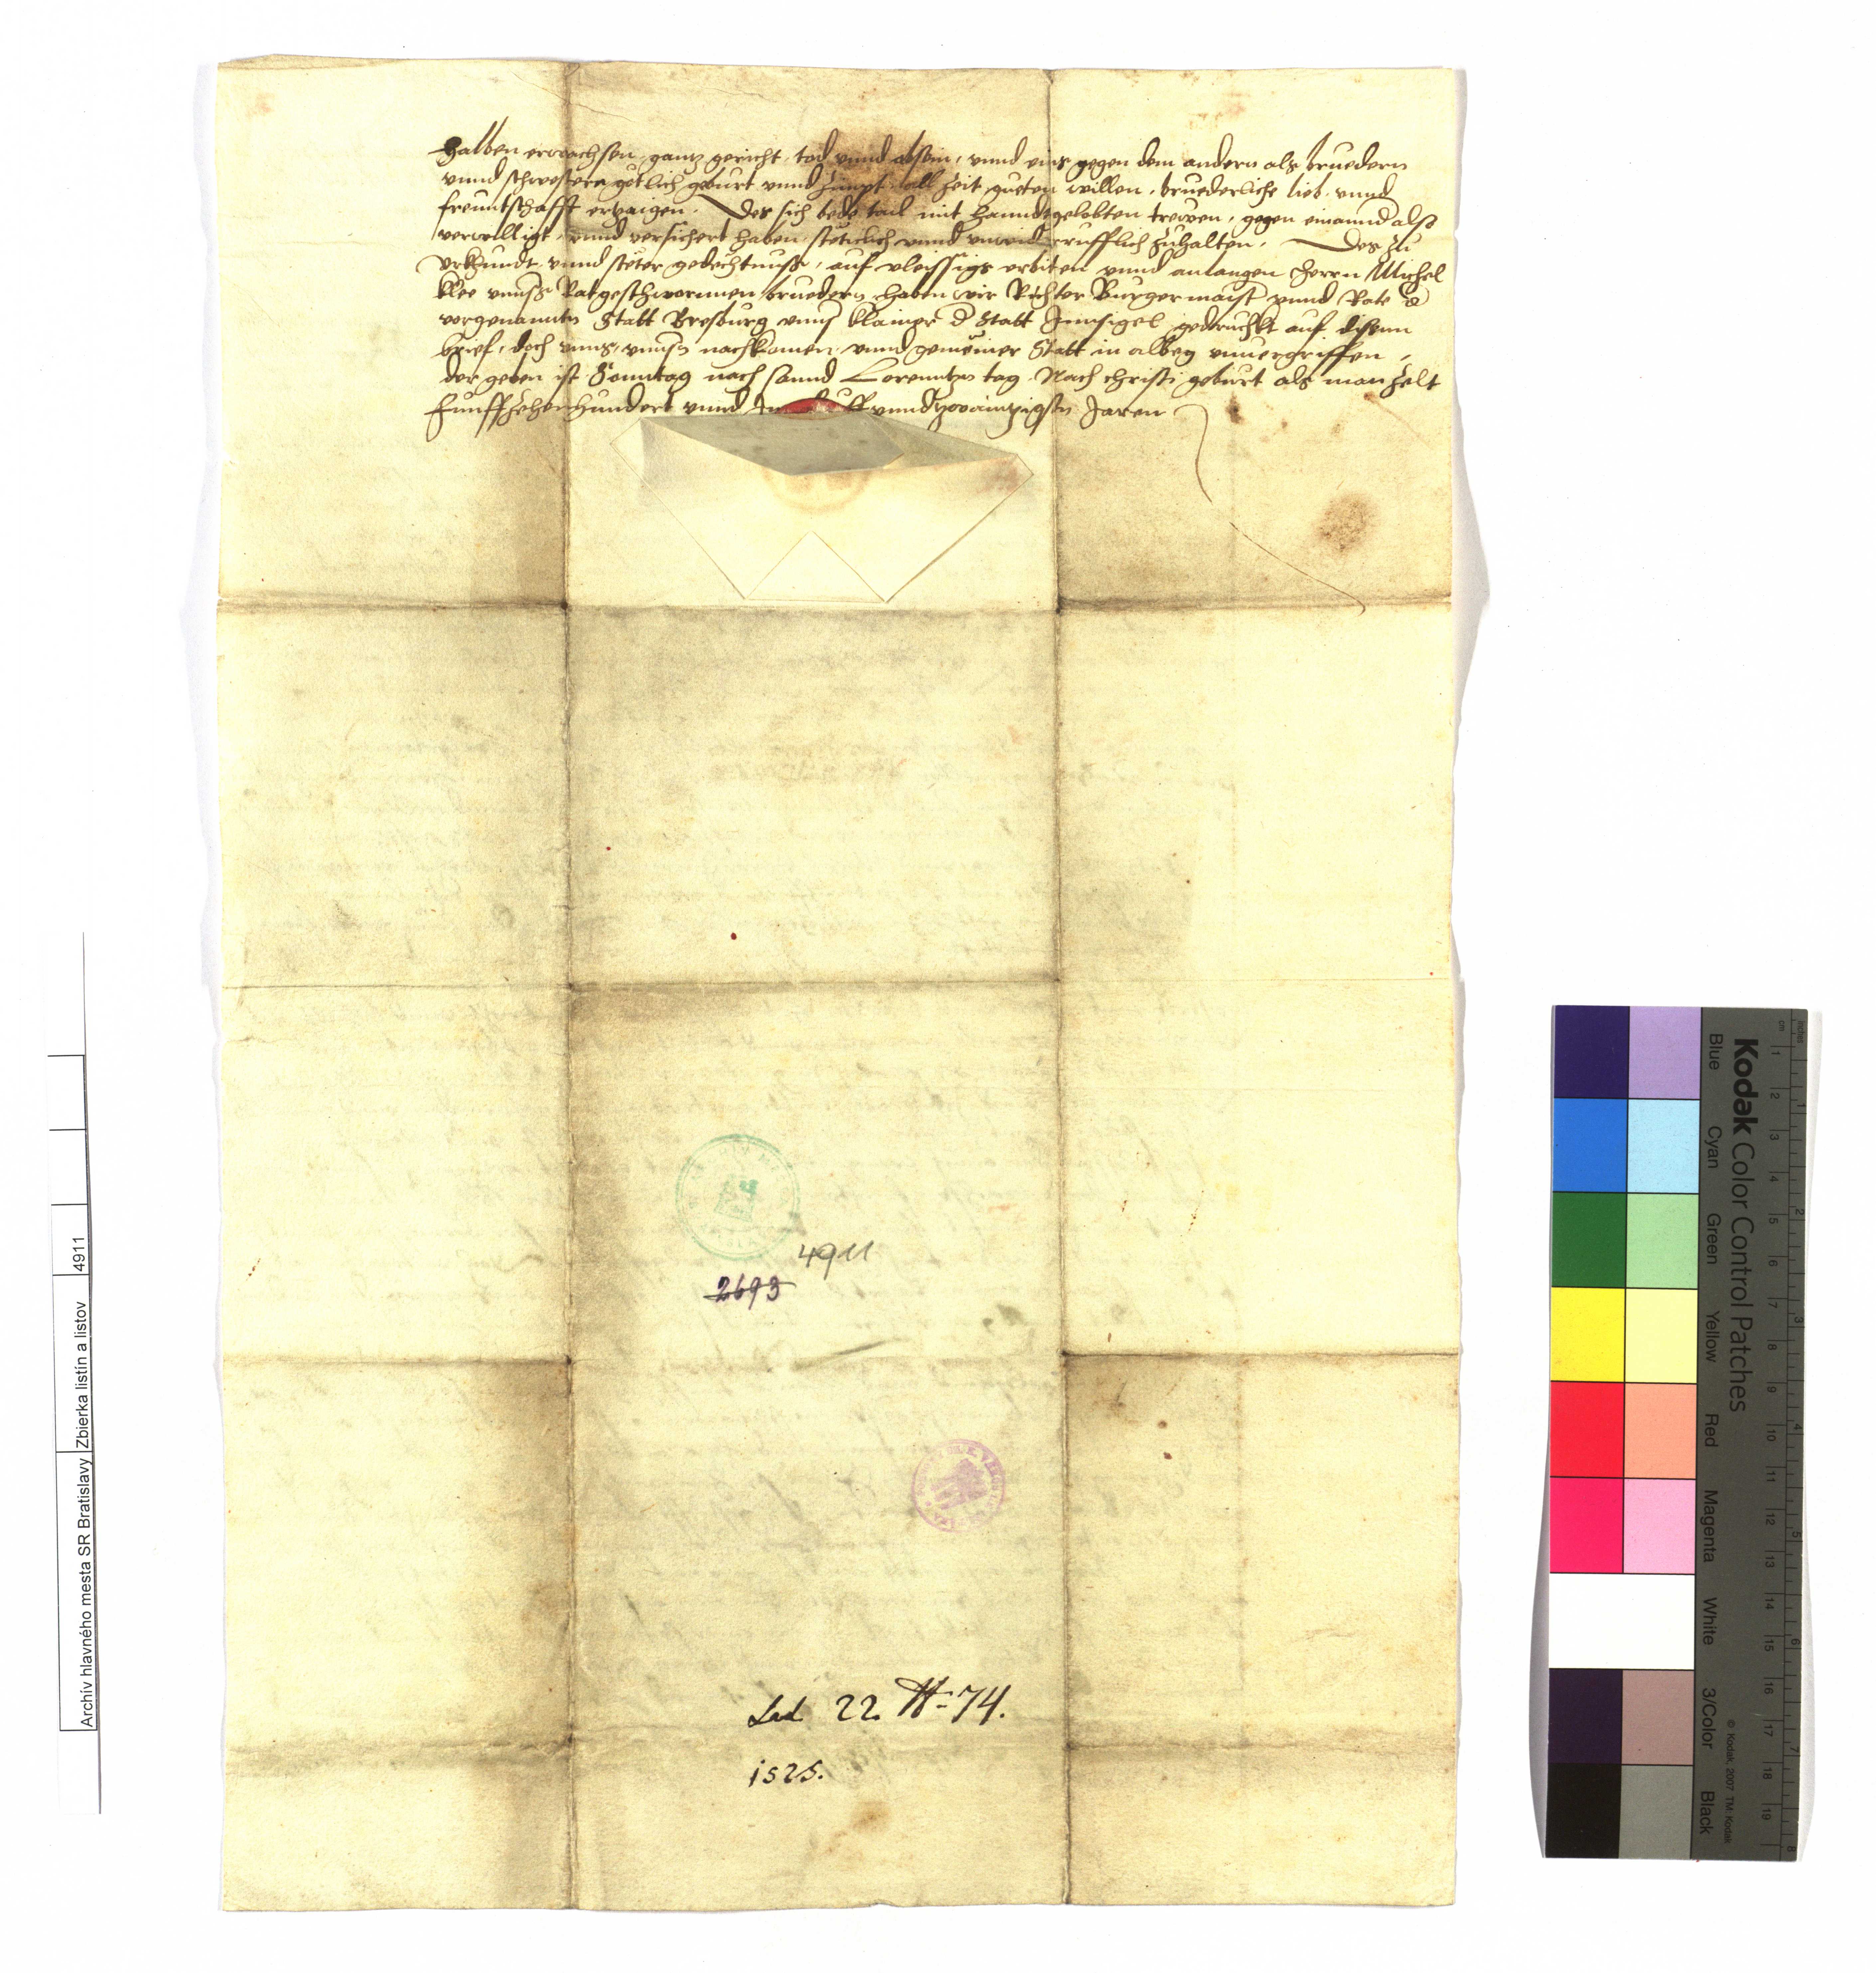 halben erwachsen, gantz gericht, tod vnnd absein, vnnd ains gegen dem andern als bruedern
vnnd schwestern götlich geburt vnnd zimpt, all zeit gueten willen, bruederliche lieb, vnnd
freuntschafft ertzaigen. Des sich bede tail mit hanndtgelobten trewen, gegen einannd also
verwilligt, vnnd versichert haben, steticlich vnnd vnwiderrufflich zuhalten. Des zu
vrkhundt vnnd steter gedechtnuss, auf vleissigs erbiten vnnd anlangen herrn Michel
klee vnnsers Ratgeschwornnen bruedern haben wir Richter Burgermaist vnnd Rate d
vorgenannten Statt Presburg vnns klainer d Statt Innsigel gedruckht auf disenn
brief, doch vnns, vnnsn nachkomen, vnnd gemeiner Statt in alweg vnuergriffen,
der geben ist Sonntag nach sannd Lorenntzn tag. Nach christi geburt als man zelt
funffzehenhundert vnnd vnndzwaintzigstn Jaren
4911
2693
Lad 22. N= 74.
1525.
Archív hlavného mesta SR Bratislavy Zbierka listín a listov 4911
Kodak Color Control Patches
Blue Cyan Green Yellow Red Magenta White 3/Color Black
© Kodak, 2007 TM: Kodak
inches 1 2 3 4 5 6 7 8
cm 1 2 3 4 5 6 7 8 9 10 11 12 13 14 15 16 17 18 19